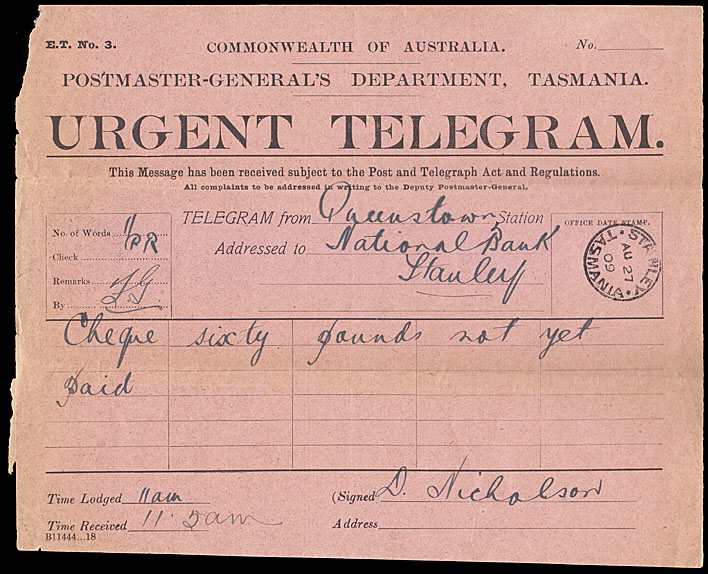 E.T. No. 3.
COMMONWEALTH OF AUSTRALIA.
No.
POSTMASTER-GENERAL'S DEPARTMENT, TASMANIA.
URGENT TELEGRAM.
This Message has been received subject to the Post and Telegraph Act and Regulations.
All complaints to be addressed in writing to the Deputy Postmaster-General.
No. of Words 11
PR
Check
Remarks
By
TELEGRAM from Queenstown Station
Addressed to National Bank
Stanley
OFFICE DATE STAMP.
STANLEY
AU 27
09
TASMANIA
Cheque sixty pounds not yet
paid
Time Lodged 11am
Time Received 11.5am
(Signed D. Nicholson
Address
B11444...18